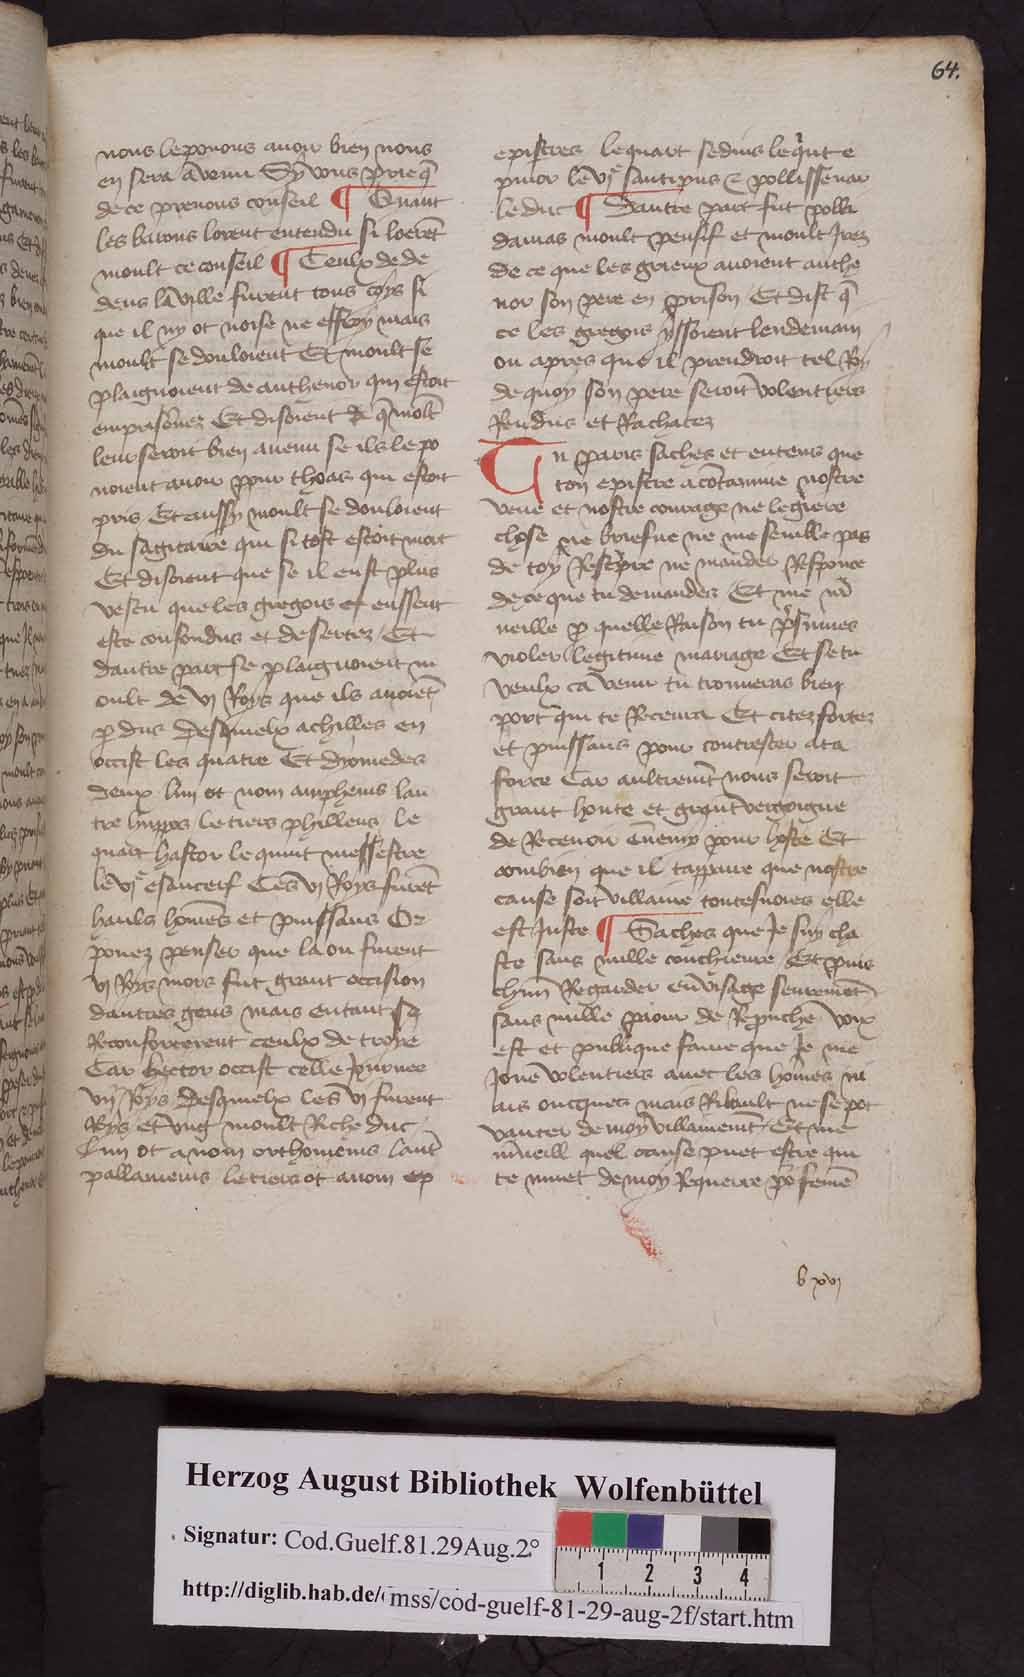 64.
nous le povons avoir bien nous
en sera avenu Sy vous prie q̄
de ce prenons conseil ¶ Quant
les barons lorent entendu si loerēt
moult ce conseil ¶ Ceulx de de
dens la ville furent tous coys si
que il ny ot noise ne effroy mais
moult se douloient Et moult se
plaignoient de anthenor qui estoit
emprisōnez Et disoient q̄ molt
leur seroit bien avenu se ils le po
voient avoir pour thoas qui estoit
pris Et aussy moult se douloient
du sagitaire qui si tost estoit mort
Et disoient que se il eust plus
vescu que les gregois eussent
este confondus et desertez / Et
dautre part se plaignoient m
oult de vi Roys que ils avoiēt
p dus Desquielx achilles en
occist les quatre Et dyomedes
deux lun ot nom amphenis lau
tre huppos le tiers philleus le
quart hastor le quint
le vi e Ces vi Roys furēt
haulx hōmes et puissans Or
povez penser que la ou furent
vi Roys mors fut grant occision
dautres gens mais entant se
Reconforterent ceulx de troye
Car hector occist celle Journee
vij Roys Desquielx les vi furent
Roys et ung moult Riche duc
Lun ot a nom orthomenis lautr
pallamenis le tiers ot a nom ep
epistres le quart sedius le qrt e
le vi e santipus & pollissenar
le duc ¶ Dautre part fut polli
damas moult pensif et moult Irez
de ce que les grieux avoient anthe
nor son pere en prison Et dist q̄
ce les gregois yssoient lendemain
ou apres que il prendroit tel Roy
de quoy son pere seroit volentiers
Rendus et Rachatez
Tu paris saches et entens que
ton epistre a cōtamine nostre
veue et nostre courage ne legiere
chose ne briefve ne me semble pas
de toy Rescpre ne mander Responce
de ce que tu demandes Et me m̄
veille p quelle Raison tu psumes
violer legitime mariage Et se tu
veulx ca venir tu trouveras bien
port qui te Recevra Et citez fortez
et puissans pour contrester a ta
force Car aultremēt nous seroit
grant honte et grant vergoigne
de Recevoir ēnemy pour hoste Et
combien que il tappaire que nostre
cause soit villaine toutesvoies elle
est Juste ¶ Saches que Je suy cha
ste sans nulle conchieure Et puis
chūn Regarder en visage seuremēt
sans nulle paour de Repruche voix
est et publique fame que Je me
Joue volentiers avec les hōmes m
ais oncques mais Ribault ne se pot
vanter de moy villainemēt / Et me
mveill quel cause puet estre qui
te muet de moy Requerre po femē
b xvj
Herzog August Bibliothek Wolfenbüttel
Signatur: Cod.Guelf.81.29Aug.2°
http://diglib.hab.de/mss/cod-guelf-81-29-aug-2f/start.htm
1 2 3 4